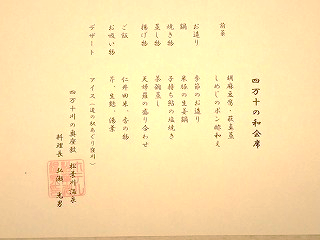 四万十の和会席
前菜 胡麻豆腐・萩豆富
しめじのポン酢和え
お造り 季節のお造り
鍋 米豚の生姜鍋
焼き物 子持ち鮎の塩焼き
蒸し物 茶碗蒸し
揚げ物 天婦羅の盛り合わせ
ご飯 仁井田米・香の物
お吸い物 芹・生麩・湯葉
デザート アイス(道の駅あぐり窪川)
四万十川の奥座敷 松葉川温泉
料理長